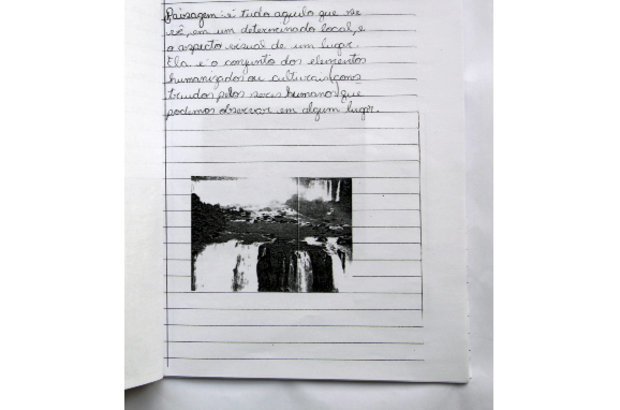 Paisagem: é tudo aquilo que se
vê, em um determinado local, e
o aspecto visual de um lugar.
Ela é o conjunto dos elementos
humanizados ou culturais, cons-
truidos pelos seres humanos que
podemos observar em algum lugar.